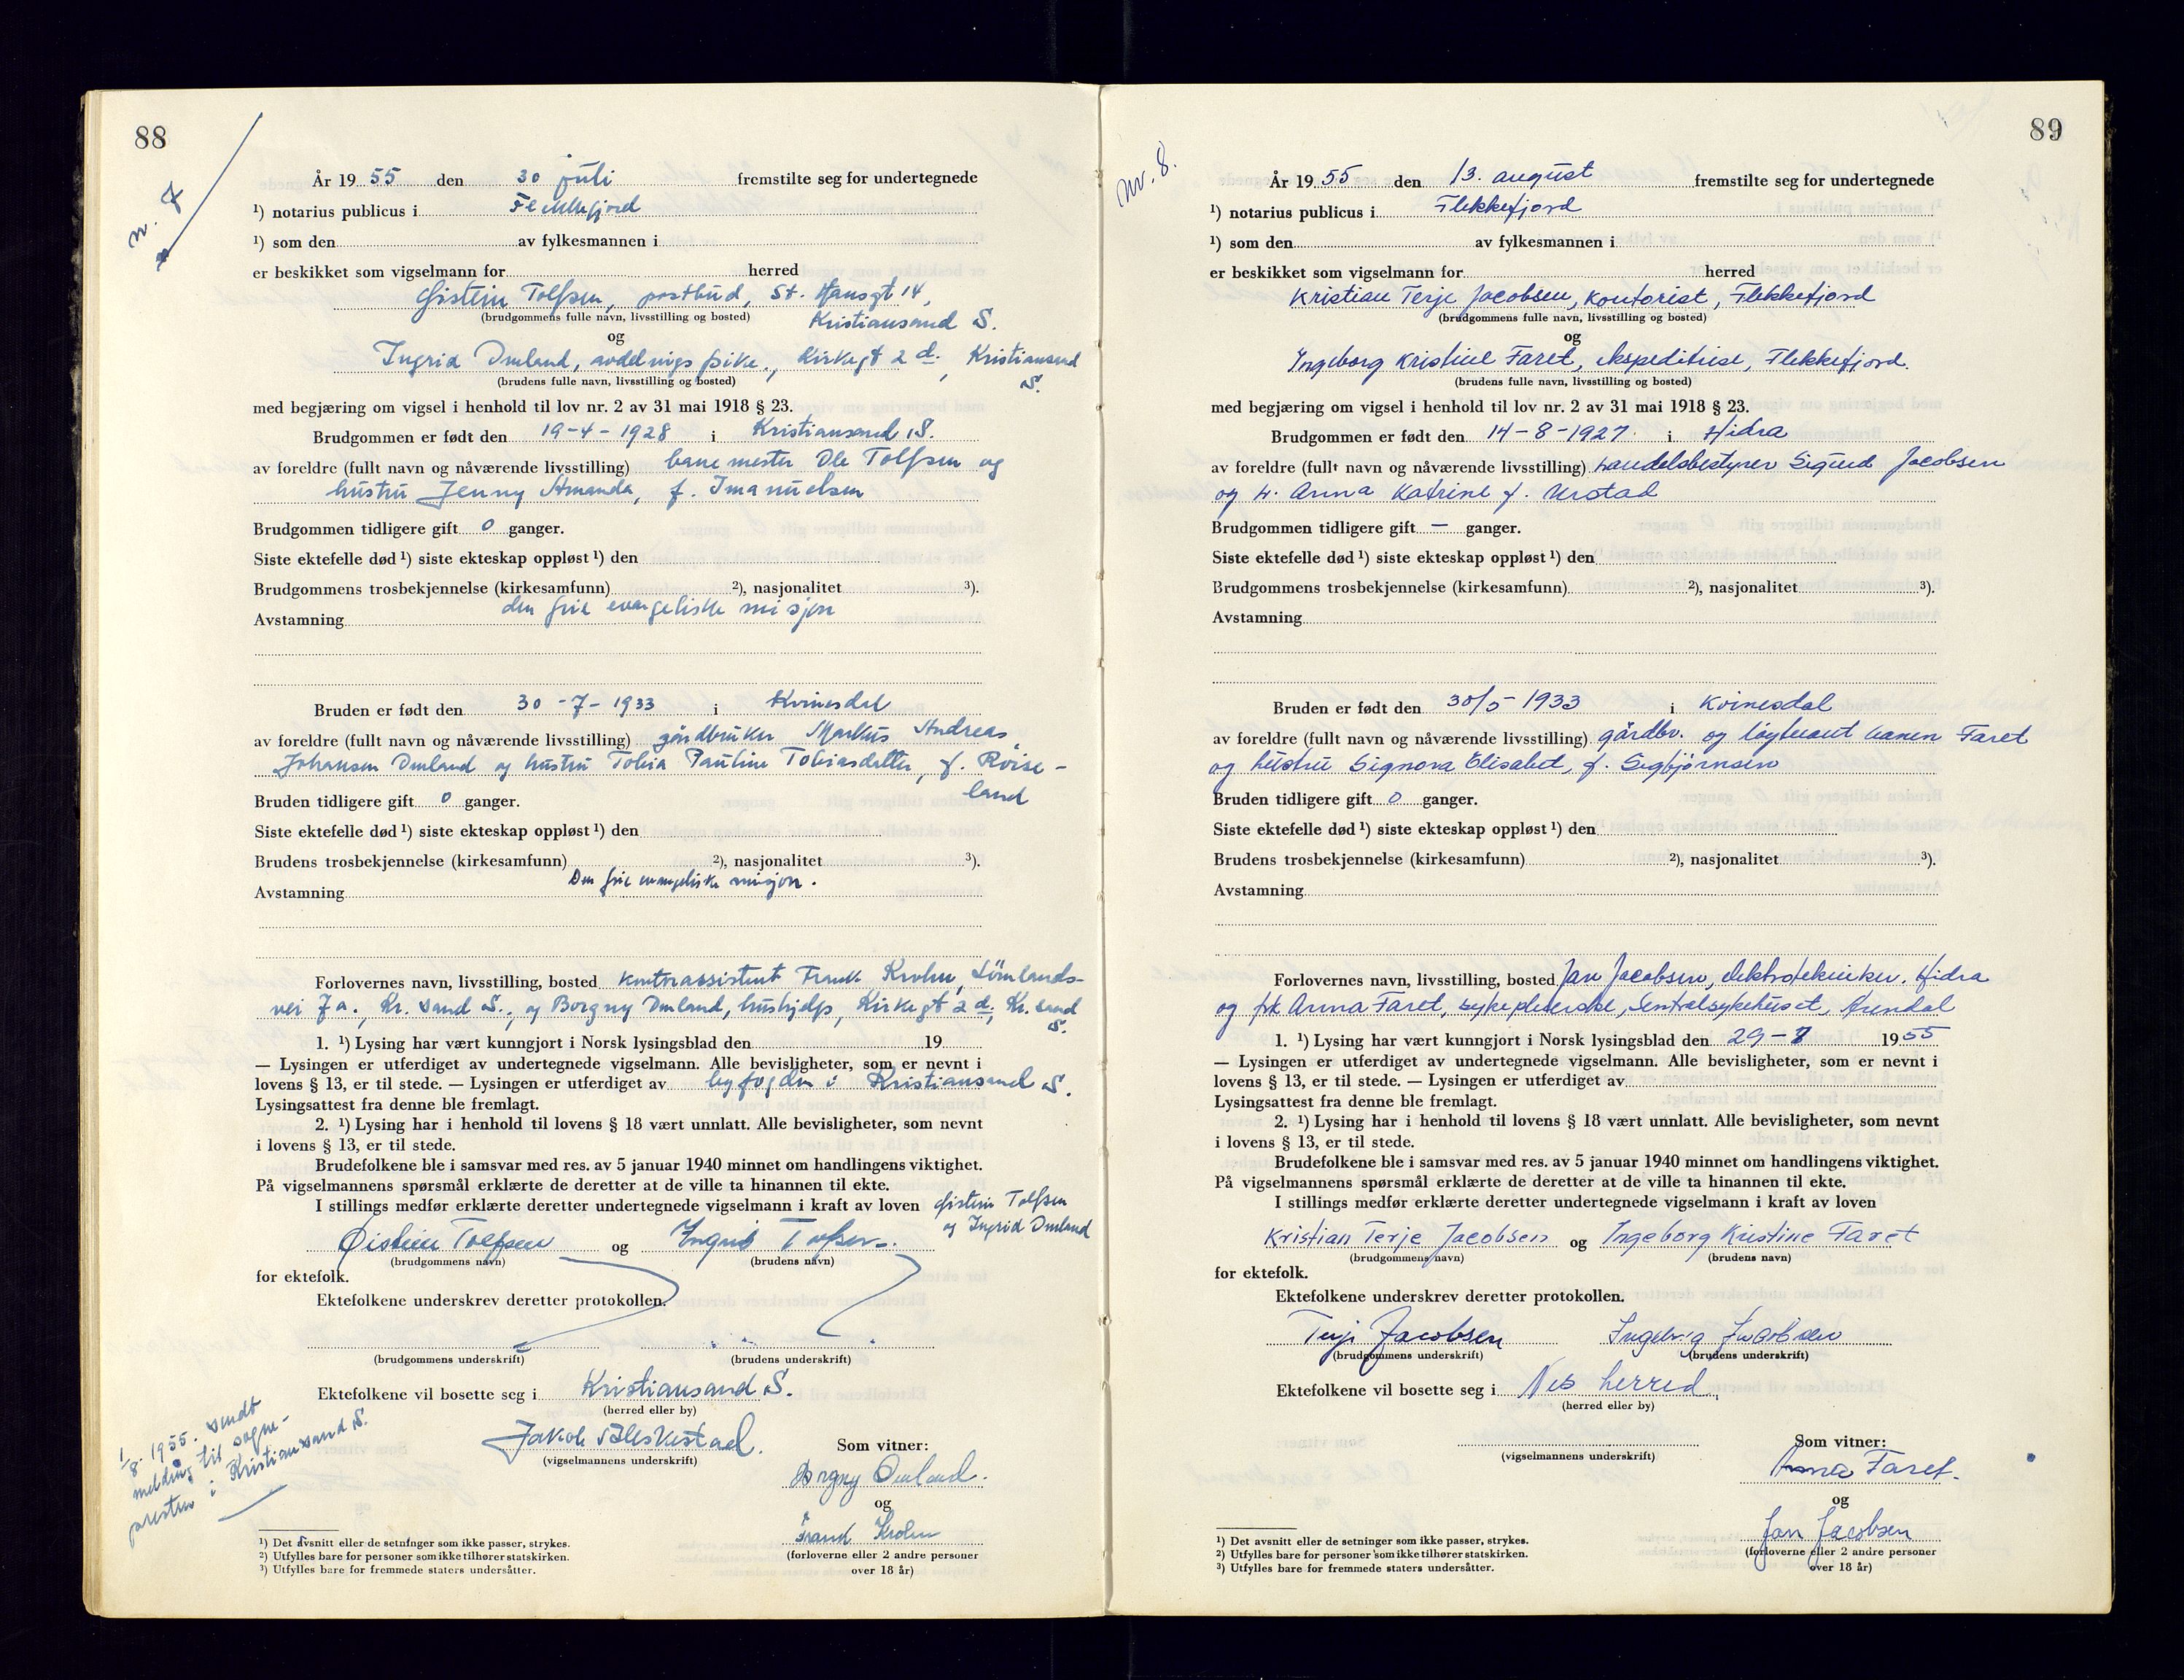 88
nr. 7
År 1955 den 30 juli fremstilte seg for undertegnede
¹) notarius publicus i Flekkefjord
¹) som den av fylkesmannen i
er beskikket som vigselmann for herred
Øistein Tolfsen, postbud, St. Hansgt 14,
(brudgommens fulle navn, livsstilling og bosted) Kristiansand S.
og
Ingrid Omland, avdelings pike., Kirkegt 2 d., Kristiansand
(brudens fulle navn, livsstilling og bosted) S.
med begjæring om vigsel i henhold til lov nr. 2 av 31 mai 1918 § 23.
Brudgommen er født den 19-4-1928 i Kristiansand S.
av foreldre (fullt navn og nåværende livsstilling) banemester Ole Tolfsen og
hustru Jenny Amanda, f. Imanuelsen
Brudgommen tidligere gift 0 ganger.
Siste ektefelle død ¹) siste ekteskap oppløst ¹) den
Brudgommens trosbekjennelse (kirkesamfunn) ²), nasjonalitet ³).
den frie evangeliske misjon
Avstamning
Bruden er født den 30-7-1933 i Kvinesdal
av foreldre (fullt navn og nåværende livsstilling) gårdbruker Markus Andreas
Johansen Omland og hustru Tobia Pauline Tobiasdatter, f. Röise-
land
Bruden tidligere gift 0 ganger.
Siste ektefelle død ¹) siste ekteskap oppløst ¹) den
Brudens trosbekjennelse (kirkesamfunn) ²), nasjonalitet ³).
Den frie evangeliske misjon.
Avstamning
Forlovernes navn, livsstilling, bosted kontorassistent Frank Krohn,
vei 7a., Kr. sand S., og Borgny Omland, hushjelp, Kirkegt 2 d, Kr. sand
S.
1. ¹) Lysing har vært kunngjort i Norsk lysingsblad den 19
— Lysingen er utferdiget av undertegnede vigselmann. Alle bevisligheter, som er nevnt i
lovens § 13, er til stede. — Lysingen er utferdiget av byfogden i Kristiansand S.
Lysingsattest fra denne ble fremlagt.
2. ¹) Lysing har i henhold til lovens § 18 vært unnlatt. Alle bevisligheter, som nevnt
i lovens § 13, er til stede.
Brudefolkene ble i samsvar med res. av 5 januar 1940 minnet om handlingens viktighet.
På vigselmannens spørsmål erklærte de deretter at de ville ta hinannen til ekte.
I stillings medfør erklærte deretter undertegnede vigselmann i kraft av loven Øistein Tolfsen
og Ingrid Omland
Øistein Tolfsen og Ingrid Tolfsen.
(brudgommens navn) (brudens navn)
for ektefolk.
Ektefolkene underskrev deretter protokollen.
(brudgommens underskrift) (brudens underskrift)
Ektefolkene vil bosette seg i Kristiansand S.
(herred eller by)
Jakob
(vigselmannens underskrift)
Som vitner:
Borgny Omland.
og
Frank Krohn
(forloverne eller 2 andre personer
over 18 år)
1/8. 1955. sendt
melding til sogne-
presten i Kristiansand S.
¹) Det avsnitt eller de setninger som ikke passer, strykes.
²) Utfylles bare for personer som ikke tilhører statskirken.
³) Utfylles bare for fremmede staters undersåtter.
89
nr. 8.
År 1955 den 13. august fremstilte seg for undertegnede
¹) notarius publicus i Flekkefjord
¹) som den av fylkesmannen i
er beskikket som vigselmann for herred
Kristian Terje Jacobsen, kontorist, Flekkefjord
(brudgommens fulle navn, livsstilling og bosted)
og
Ingeborg Kristine Faret, ekspeditrise, Flekkefjord.
(brudens fulle navn, livsstilling og bosted)
med begjæring om vigsel i henhold til lov nr. 2 av 31 mai 1918 § 23.
Brudgommen er født den 14-8-1927. i Hidra
av foreldre (fullt navn og nåværende livsstilling) handelsbestyrer Sigurd Jacobsen
og h. Anna Katrine f. Urstad
Brudgommen tidligere gift — ganger.
Siste ektefelle død ¹) siste ekteskap oppløst ¹) den
Brudgommens trosbekjennelse (kirkesamfunn) ²), nasjonalitet ³).
Avstamning
Bruden er født den 30/5-1933 i Kvinesdal
av foreldre (fullt navn og nåværende livsstilling) gårdbr. og løytnant Faret
og hustru Signora Elisabet, f. Sigbjørnsen
Bruden tidligere gift 0 ganger.
Siste ektefelle død ¹) siste ekteskap oppløst ¹) den
Brudens trosbekjennelse (kirkesamfunn) ²), nasjonalitet ³).
Avstamning
Forlovernes navn, livsstilling, bosted Jan Jacobsen, elektrotekniker. Hidra
og frk Anna Faret, sykepleierske, Sentralsykehuset, Arendal
1. ¹) Lysing har vært kunngjort i Norsk lysingsblad den 29-7 1955
— Lysingen er utferdiget av undertegnede vigselmann. Alle bevisligheter, som er nevnt i
lovens § 13, er til stede. — Lysingen er utferdiget av
Lysingsattest fra denne ble fremlagt.
2. ¹) Lysing har i henhold til lovens § 18 vært unnlatt. Alle bevisligheter, som nevnt
i lovens § 13, er til stede.
Brudefolkene ble i samsvar med res. av 5 januar 1940 minnet om handlingens viktighet.
På vigselmannens spørsmål erklærte de deretter at de ville ta hinannen til ekte.
I stillings medfør erklærte deretter undertegnede vigselmann i kraft av loven
Kristian Terje Jacobsen og Ingeborg Kristine Faret
(brudgommens navn) (brudens navn)
for ektefolk.
Ektefolkene underskrev deretter protokollen.
Terje Jacobsen Ingeborg Jacobsen
(brudgommens underskrift) (brudens underskrift)
Ektefolkene vil bosette seg i Nes herred,
(herred eller by)
(vigselmannens underskrift)
Som vitner:
Anna Faret.
og
Jan Jacobsen
(forloverne eller 2 andre personer
over 18 år)
¹) Det avsnitt eller de setninger som ikke passer, strykes.
²) Utfylles bare for personer som ikke tilhører statskirken.
³) Utfylles bare for fremmede staters undersåtter.